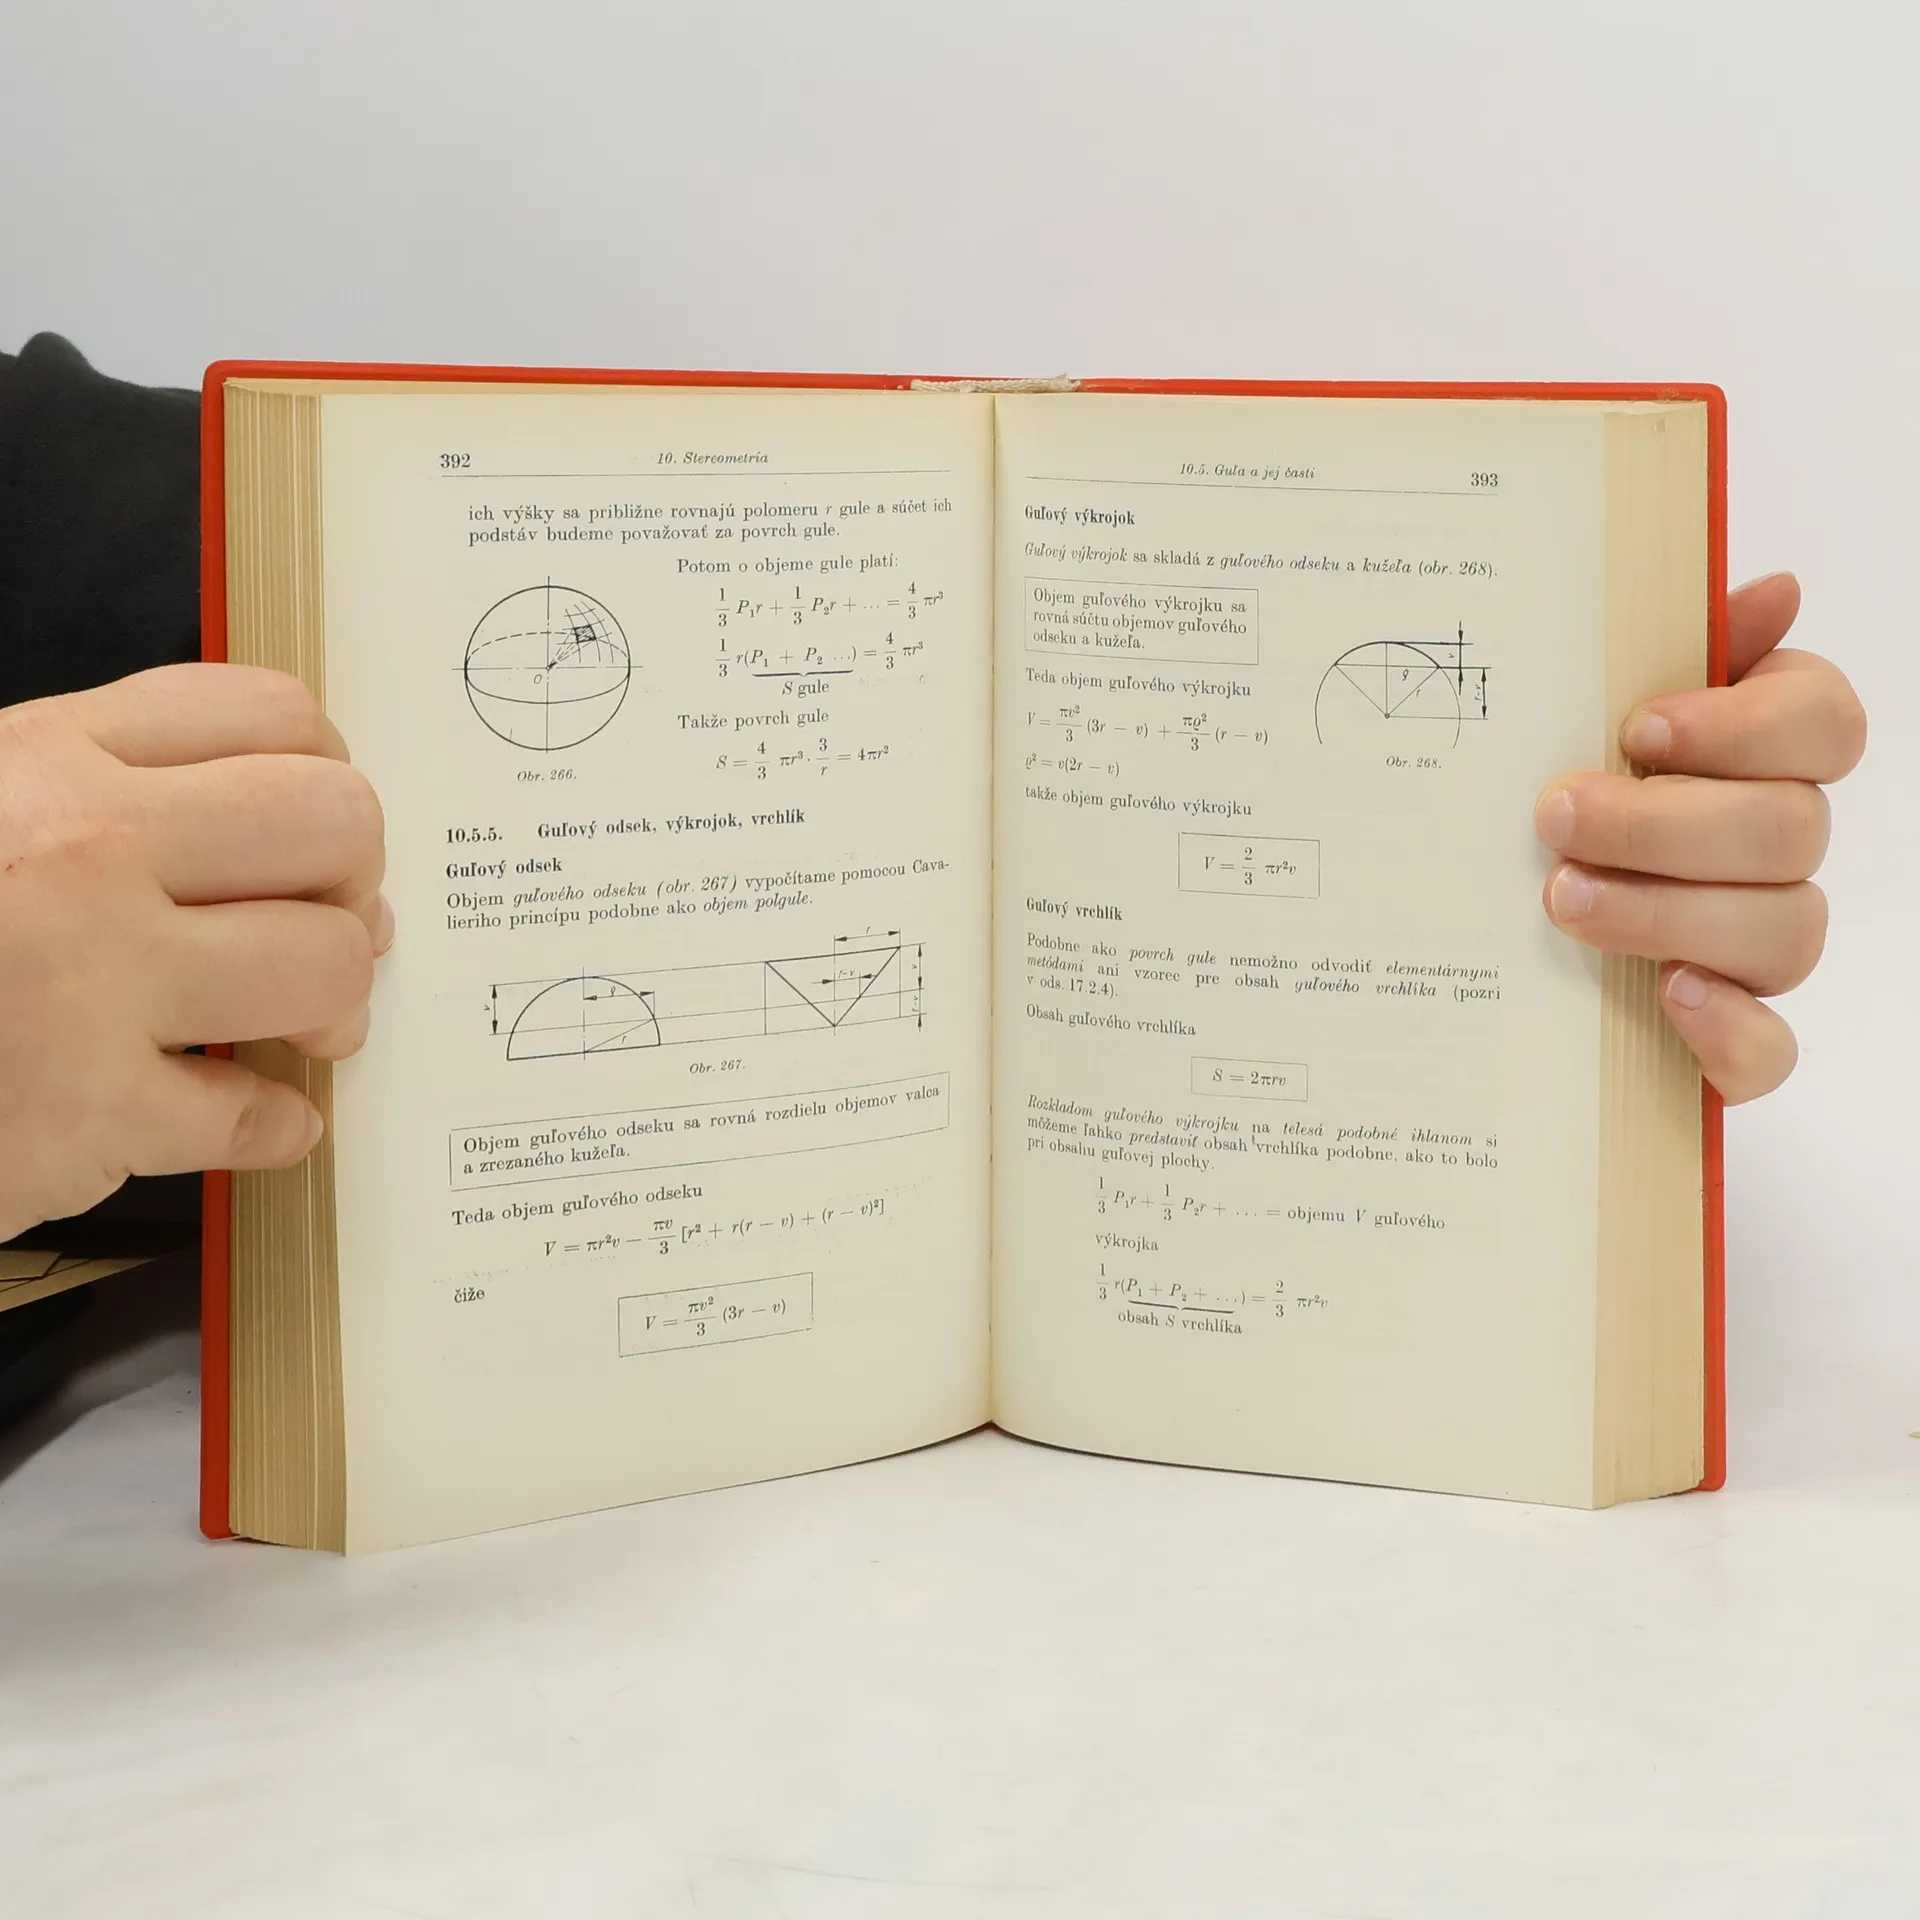 392
10. Stereometria
ich výšky sa približne rovnajú polomeru r gule a súčet ich
podstáv budeme považovať za povrch gule.
Potom o objeme gule platí:
1/3 P₁r + 1/3 P₂r + ... = 4/3 πr³
1/3 r(P₁ + P₂ ...) = 4/3 πr³
S gule
Takže povrch gule
S = 4/3 πr³ . 3/r = 4πr²
O
Obr. 266.
10.5.5. Guľový odsek, výkrojok, vrchlík
Guľový odsek
Objem guľového odseku (obr. 267) vypočítame pomocou Cava-
lieriho princípu podobne ako objem polgule.
r
v
ϱ
r
r−v
v
r−v
Obr. 267.
Objem guľového odseku sa rovná rozdielu objemov valca
a zrezaného kužeľa.
Teda objem guľového odseku
V = πr²v − πv/3 [r² + r(r − v) + (r − v)²]
čiže
V = πv²/3 (3r − v)
10.5. Guľa a jej časti
393
Guľový výkrojok
Guľový výkrojok sa skladá z guľového odseku a kužeľa (obr. 268).
Objem guľového výkrojku sa
rovná súčtu objemov guľového
odseku a kužeľa.
Teda objem guľového výkrojku
V = πv²/3 (3r − v) + πϱ²/3 (r − v)
ϱ² = v(2r − v)
takže objem guľového výkrojku
v
ϱ
r
r−v
Obr. 268.
V = 2/3 πr²v
Guľový vrchlík
Podobne ako povrch gule nemožno odvodiť elementárnymi
metódami ani vzorec pre obsah guľového vrchlíka (pozri
v ods. 17.2.4).
Obsah guľového vrchlíka
S = 2πrv
Rozkladom guľového výkrojku na telesá podobné ihlanom si
môžeme ľahko predstaviť obsah vrchlíka podobne, ako to bolo
pri obsahu guľovej plochy.
1/3 P₁r + 1/3 P₂r + ... = objemu V guľového
výkrojka
1/3 r(P₁ + P₂ + ...) = 2/3 πr²v
obsah S vrchlíka